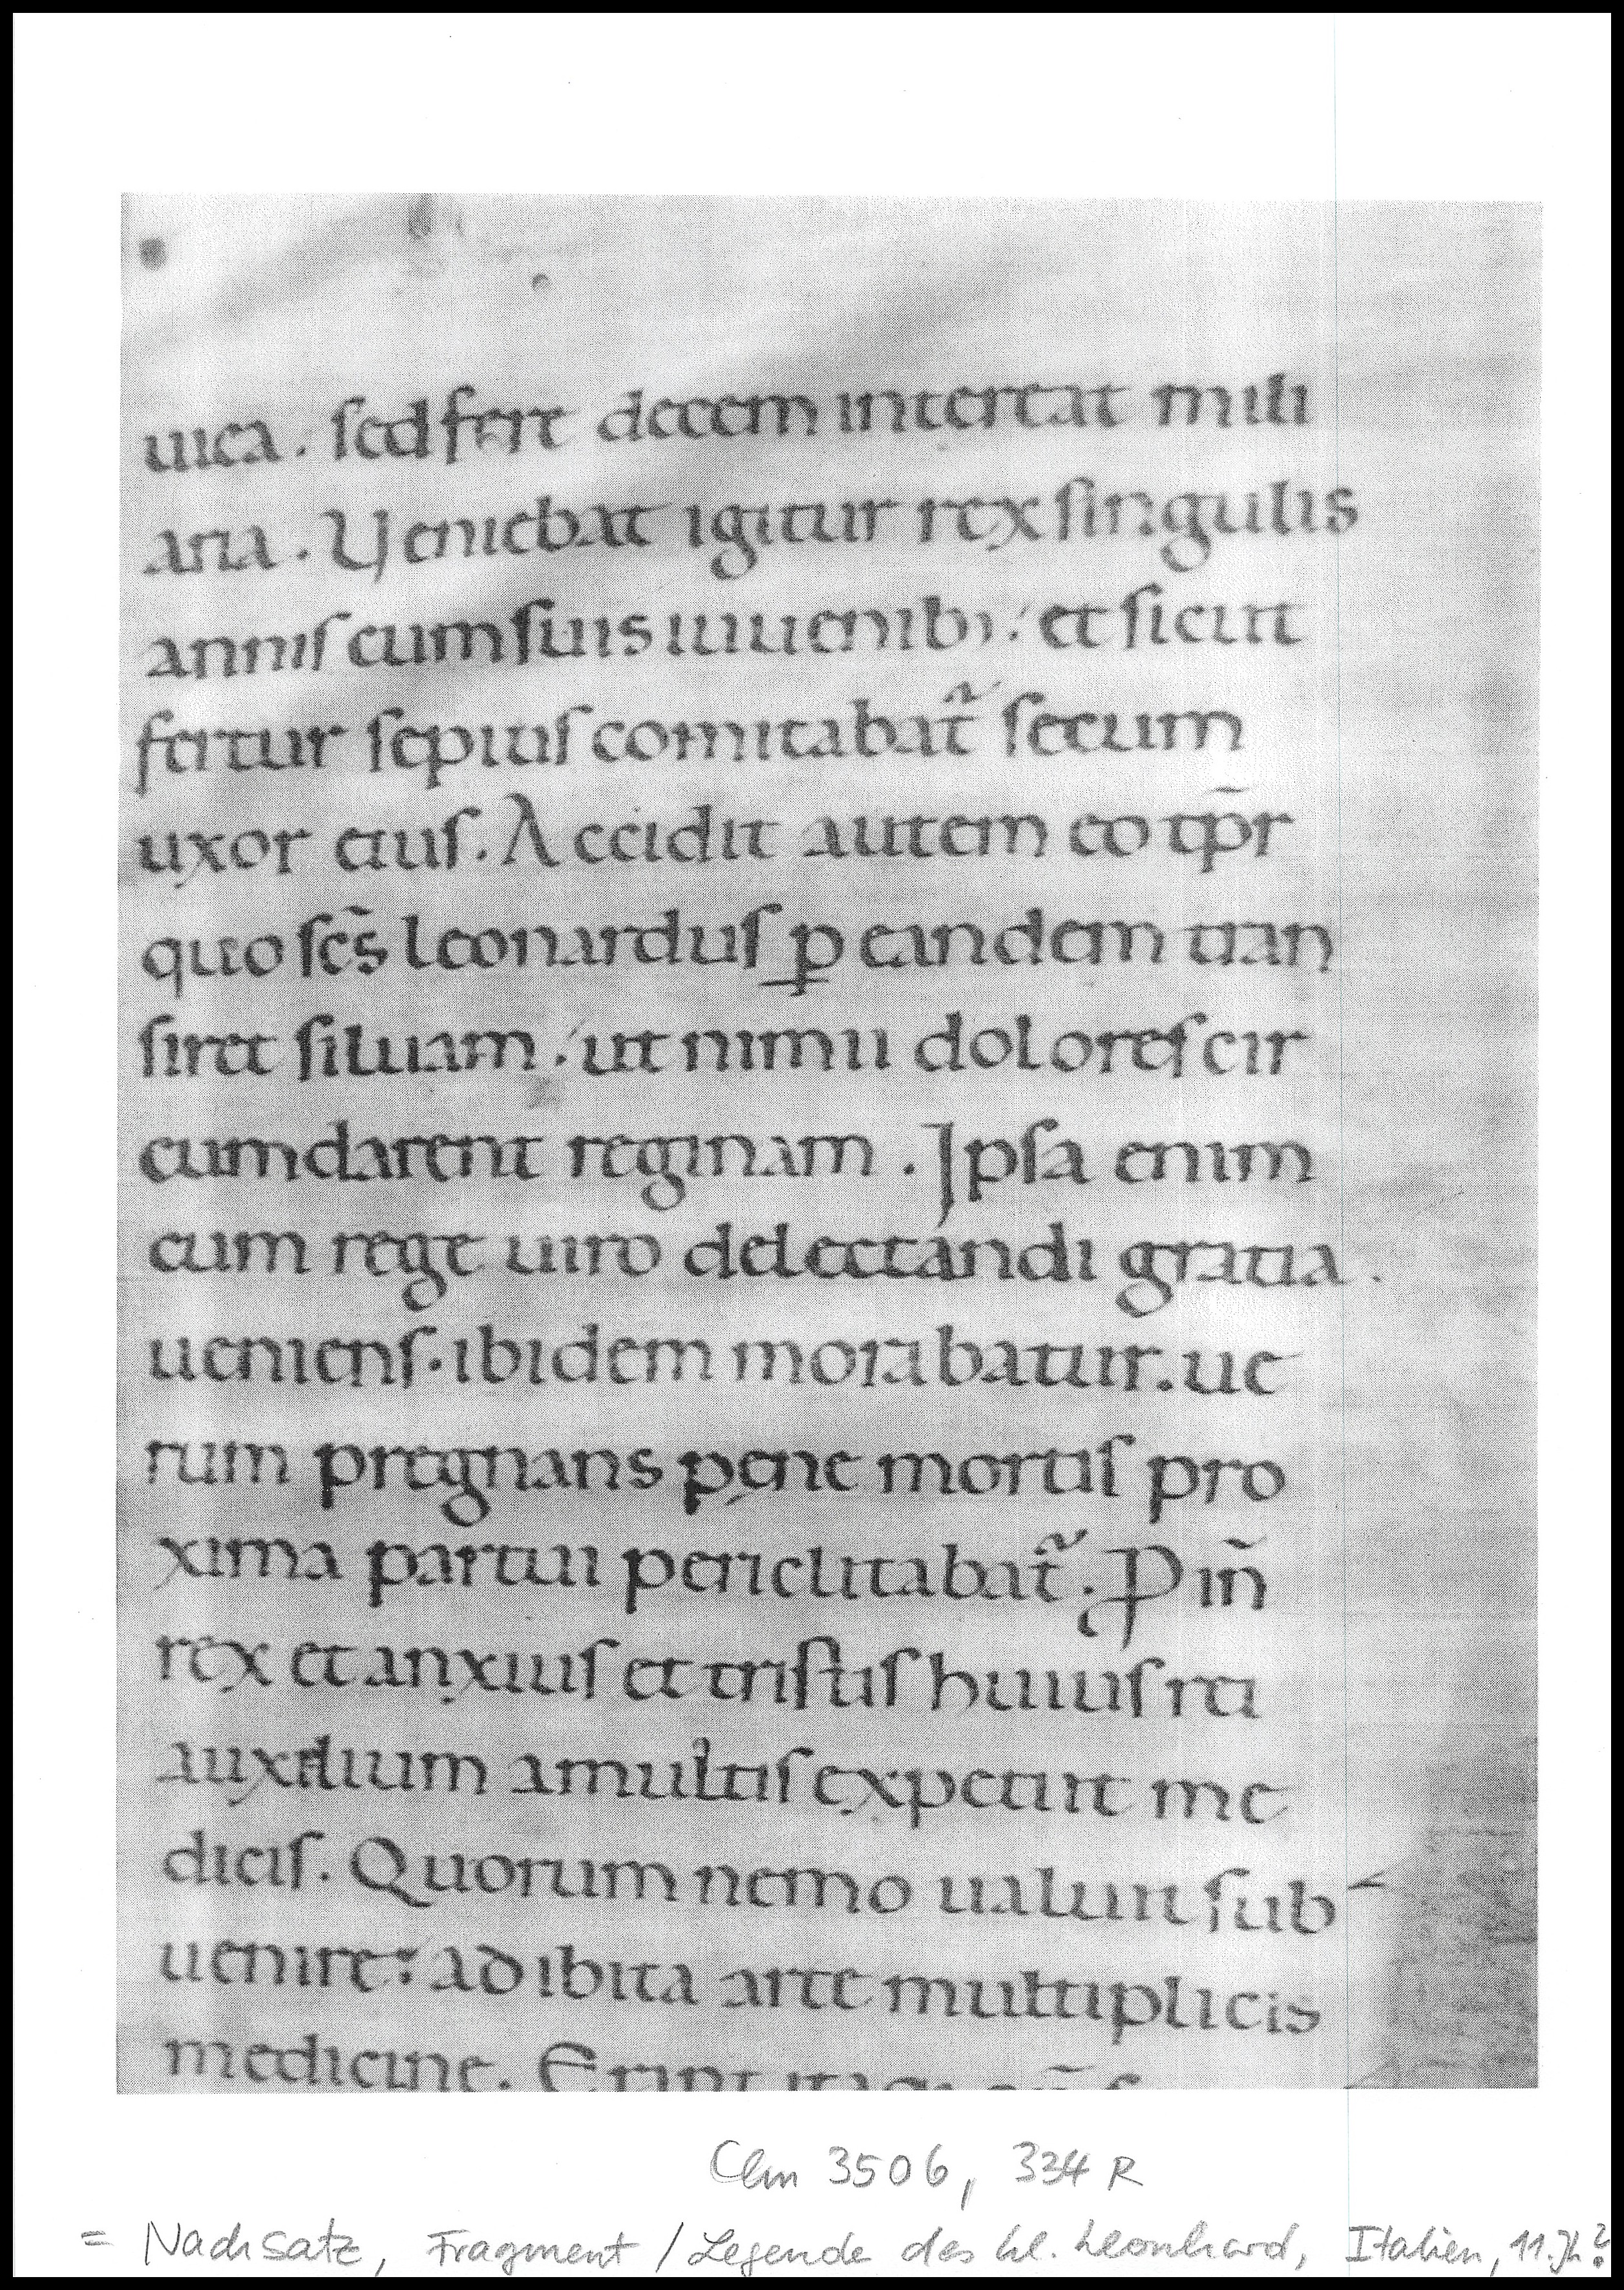 uica. sed fere decem intererat mili
aria. Veniebat igitur rex singulis
annis cum suis iuuenib; et sicut
fertur sepius comitabat̃ secum
uxor eius. Accidit autem eo tp̄r
quo scs̄ leonardus ꝑ eandem tran
siret siluam; ut nimii dolores cir
cumdarent reginam. Ipsa enim
cum rege uiro delectandi gratia.
ueniens. ibidem morabatur. ue
rum pregnans pene mortis pro
xima partui periclitabat̃. Ꝓ in̄
rex et anxius et tristis huius rei
auxilium a multis expetiit me
dicis. Quorum nemo ualuit sub-
uenire: adibita arte multiplicis
medicine.
Clm 3506, 334 R
= Nachsatz, Fragment / Legende des hl. Leonhard, Italien, 11. Jh?